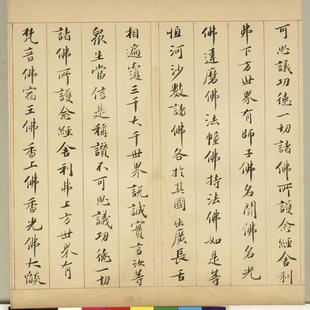 可思議功德一切諸佛所護念經舍利
弗下方世界有師子佛名聞佛名光
佛達磨佛法幢佛持法佛如是等
恒河沙數諸佛各於其國出廣長舌
相遍覆三千大千世界説誠實言汝等
眾生當信是稱讚不可思議功德一切
諸佛所護念經舍利弗上方世界有
梵音佛宿王佛香上佛香光佛大燄